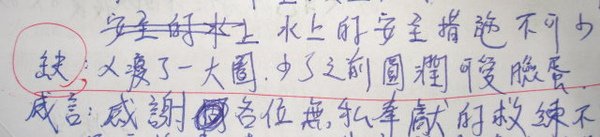 安全的水上 水上的安全措施不可少
缺:又瘦了一大圈.少了之前圓潤可愛臉蛋.
感言:感謝各位無私奉獻的教練不